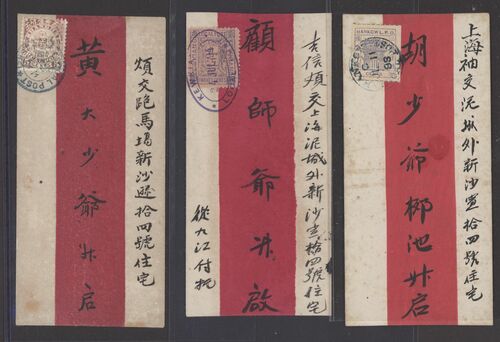 煩交跑馬場新沙遜拾四號住宅
黄大少爺升启
吉信煩交上海泥城外新沙宣拾四號住宅
顧師爺升啟
從九江付
HANKOW L.P.O.
上海袖交泥城外新沙宣拾四號住宅
胡少爺池升启